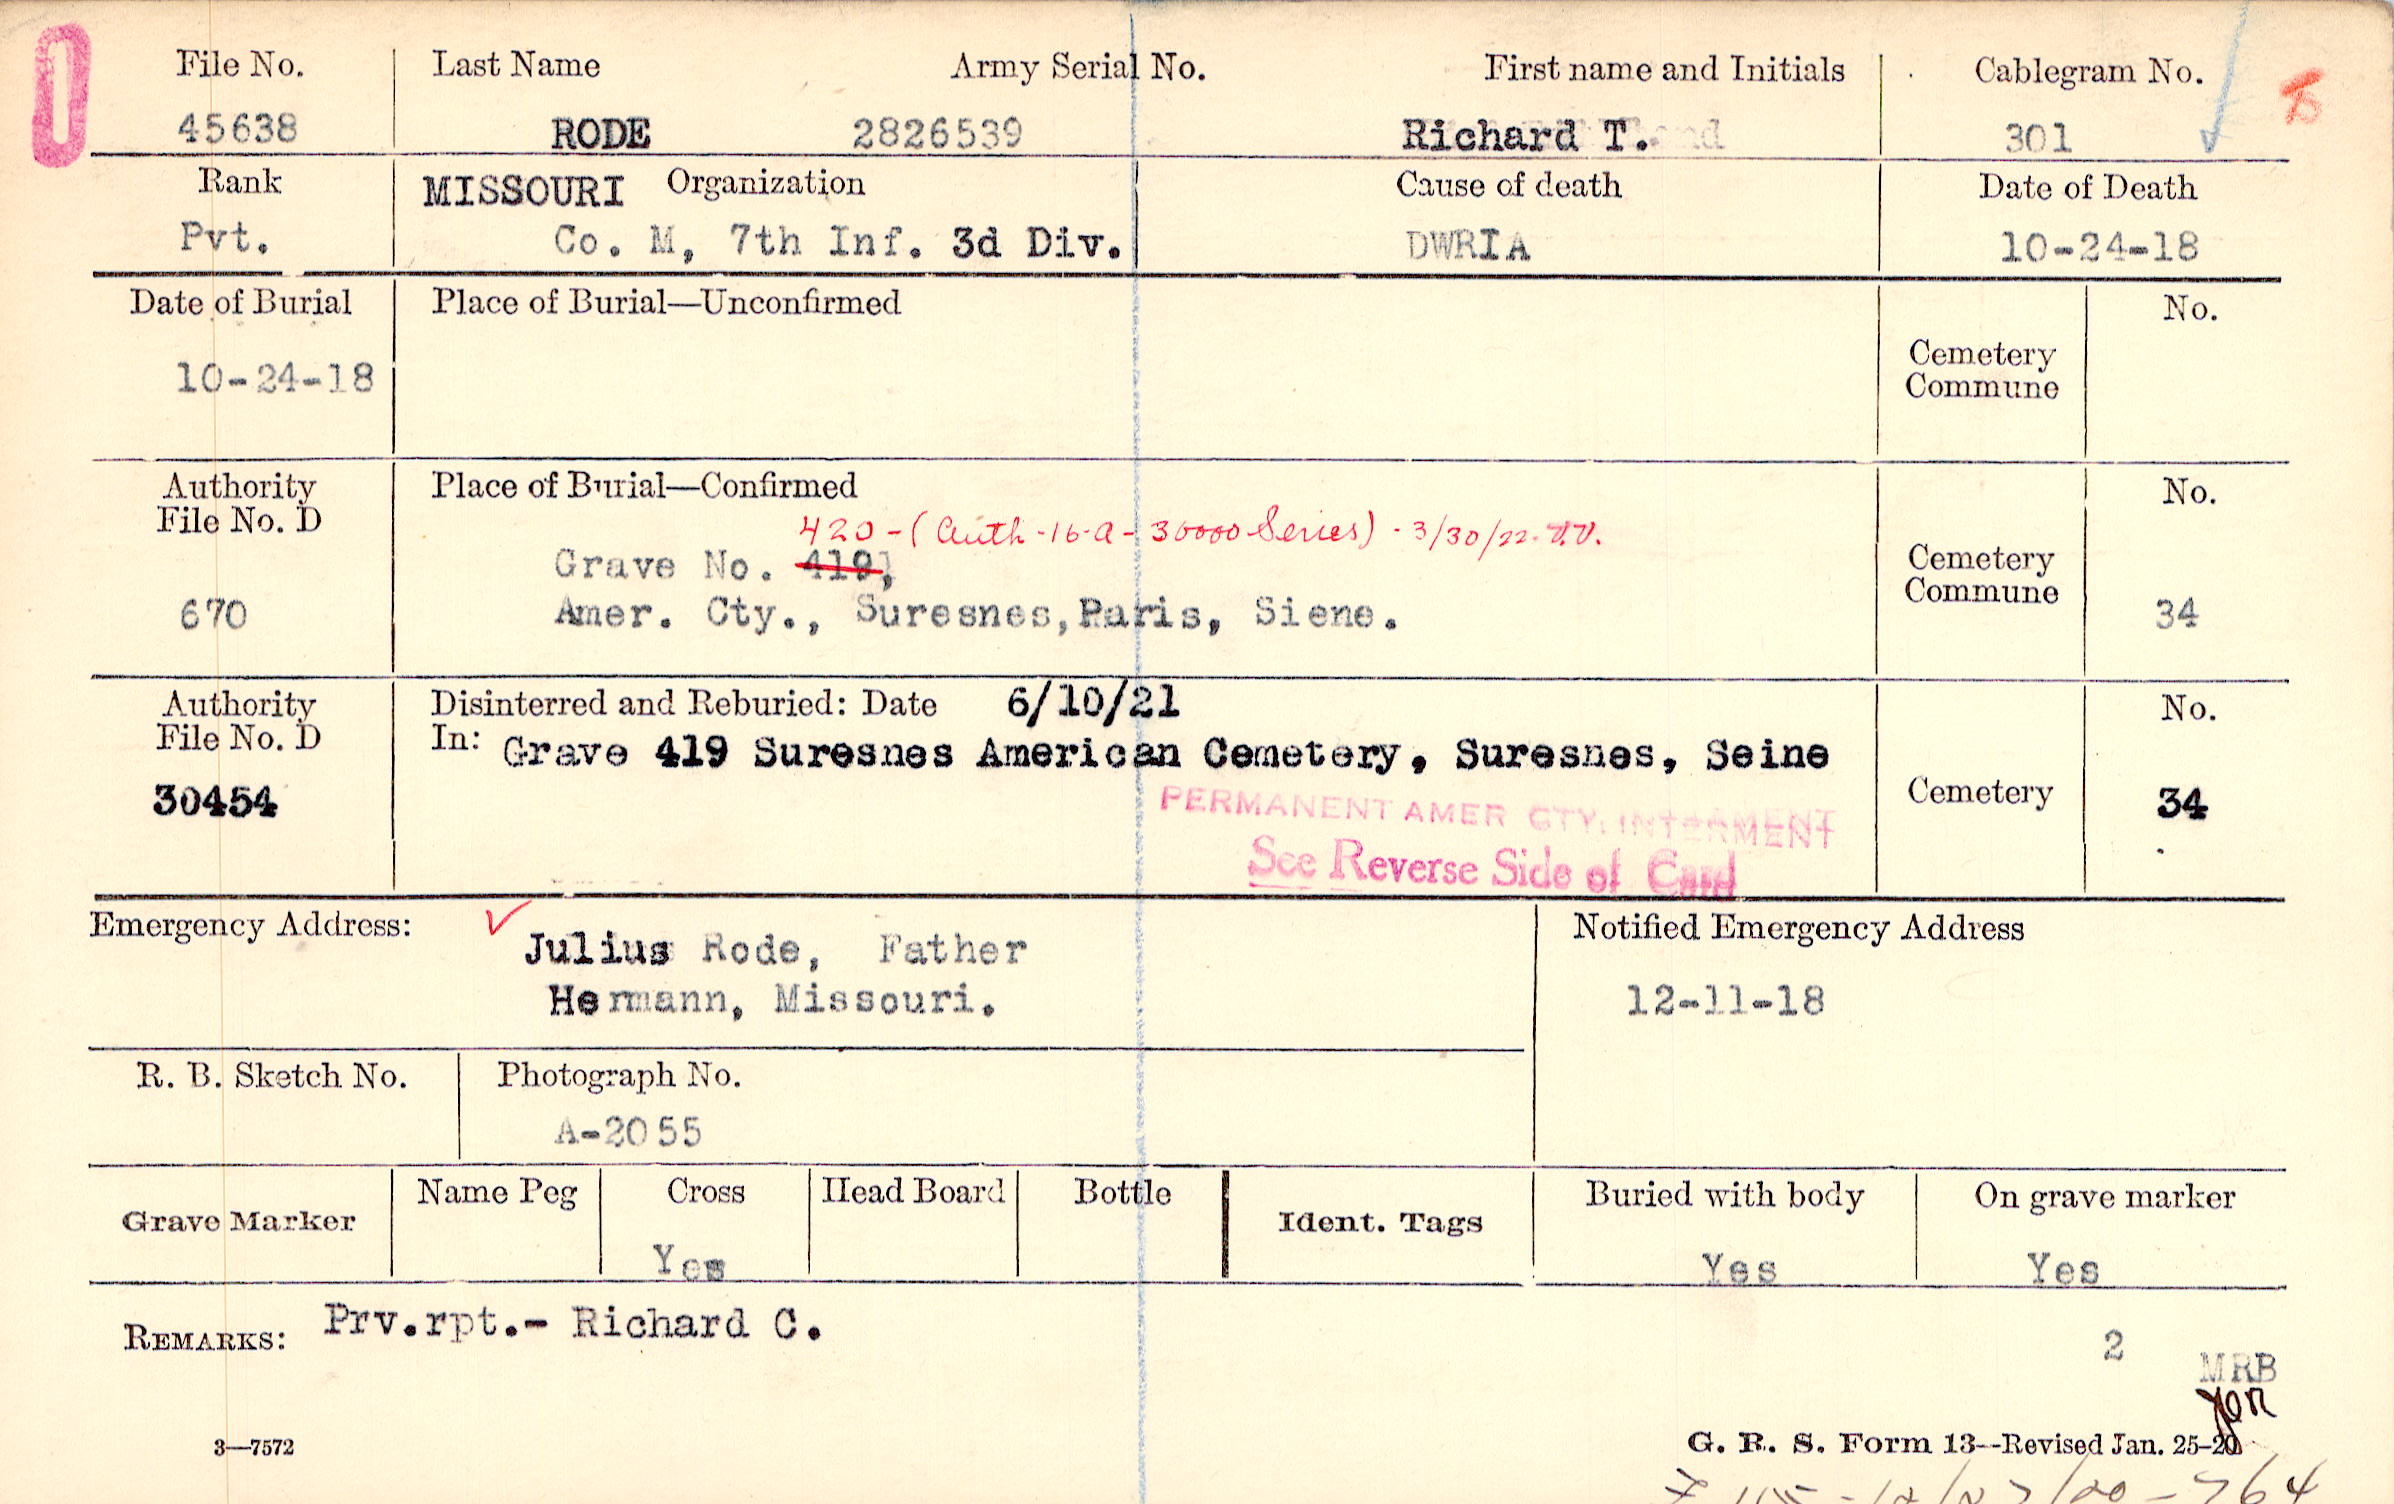 File No. Last Name Army Serial No. First name and Initials Cablegram No.
45638 RODE 2826539 Richard T. 301
Rank MISSOURI Organization Cause of death Date of Death
Pvt. Co. M, 7th Inf. 3d Div. DWRIA 10-24-18
Date of Burial Place of Burial—Unconfirmed No.
10-24-18 Cemetery
Commune
Authority Place of Burial—Confirmed No.
File No. D 420-(Auth-16-a-30000 Series)-3/30/22.
Grave No. 419, Cemetery
Commune
670 Amer. Cty., Suresnes,Paris, Siene. 34
Authority Disinterred and Reburied: Date 6/10/21 No.
File No. D In: Grave 419 Suresnes American Cemetery, Suresnes, Seine
30454 PERMANENT AMER CTY. INTERMENT Cemetery 34
See Reverse Side of Card
Emergency Address: Julius Rode, Father Notified Emergency Address
Hermann, Missouri. 12-11-18
R. B. Sketch No. Photograph No.
A-2055
Grave Marker Name Peg Cross Head Board Bottle Ident. Tags Buried with body On grave marker
Yes Yes Yes
REMARKS: Prv.rpt.- Richard C.
2
MRB
3—7572 G. R. S. Form 13--Revised Jan. 25-20